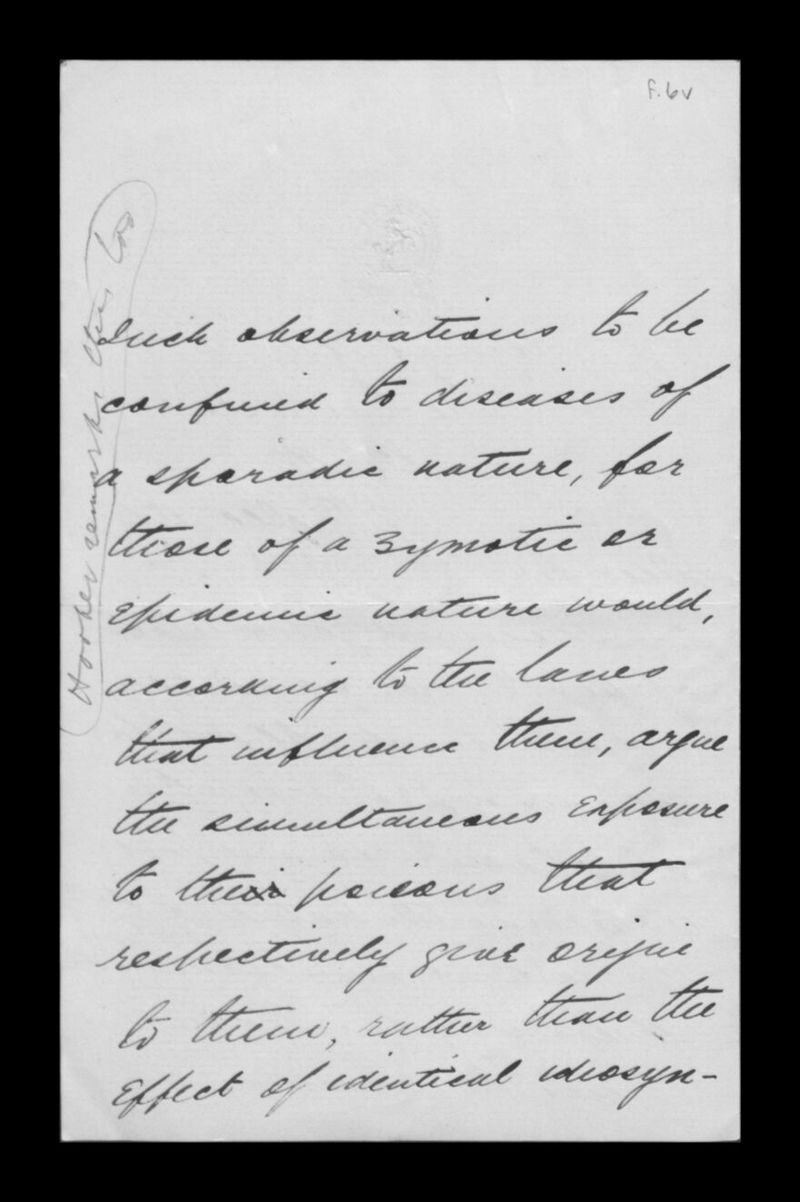 f.6v
Hooker remarks this too
Such observations to be
confined to diseases of
a sporadic nature, for
those of a zymotic or
epidemic nature would,
according to the laws
that influence them, argue
the simultaneous exposure
to the poisons that
respectively give origin
to them, rather than the
effect of identical idiosyn-